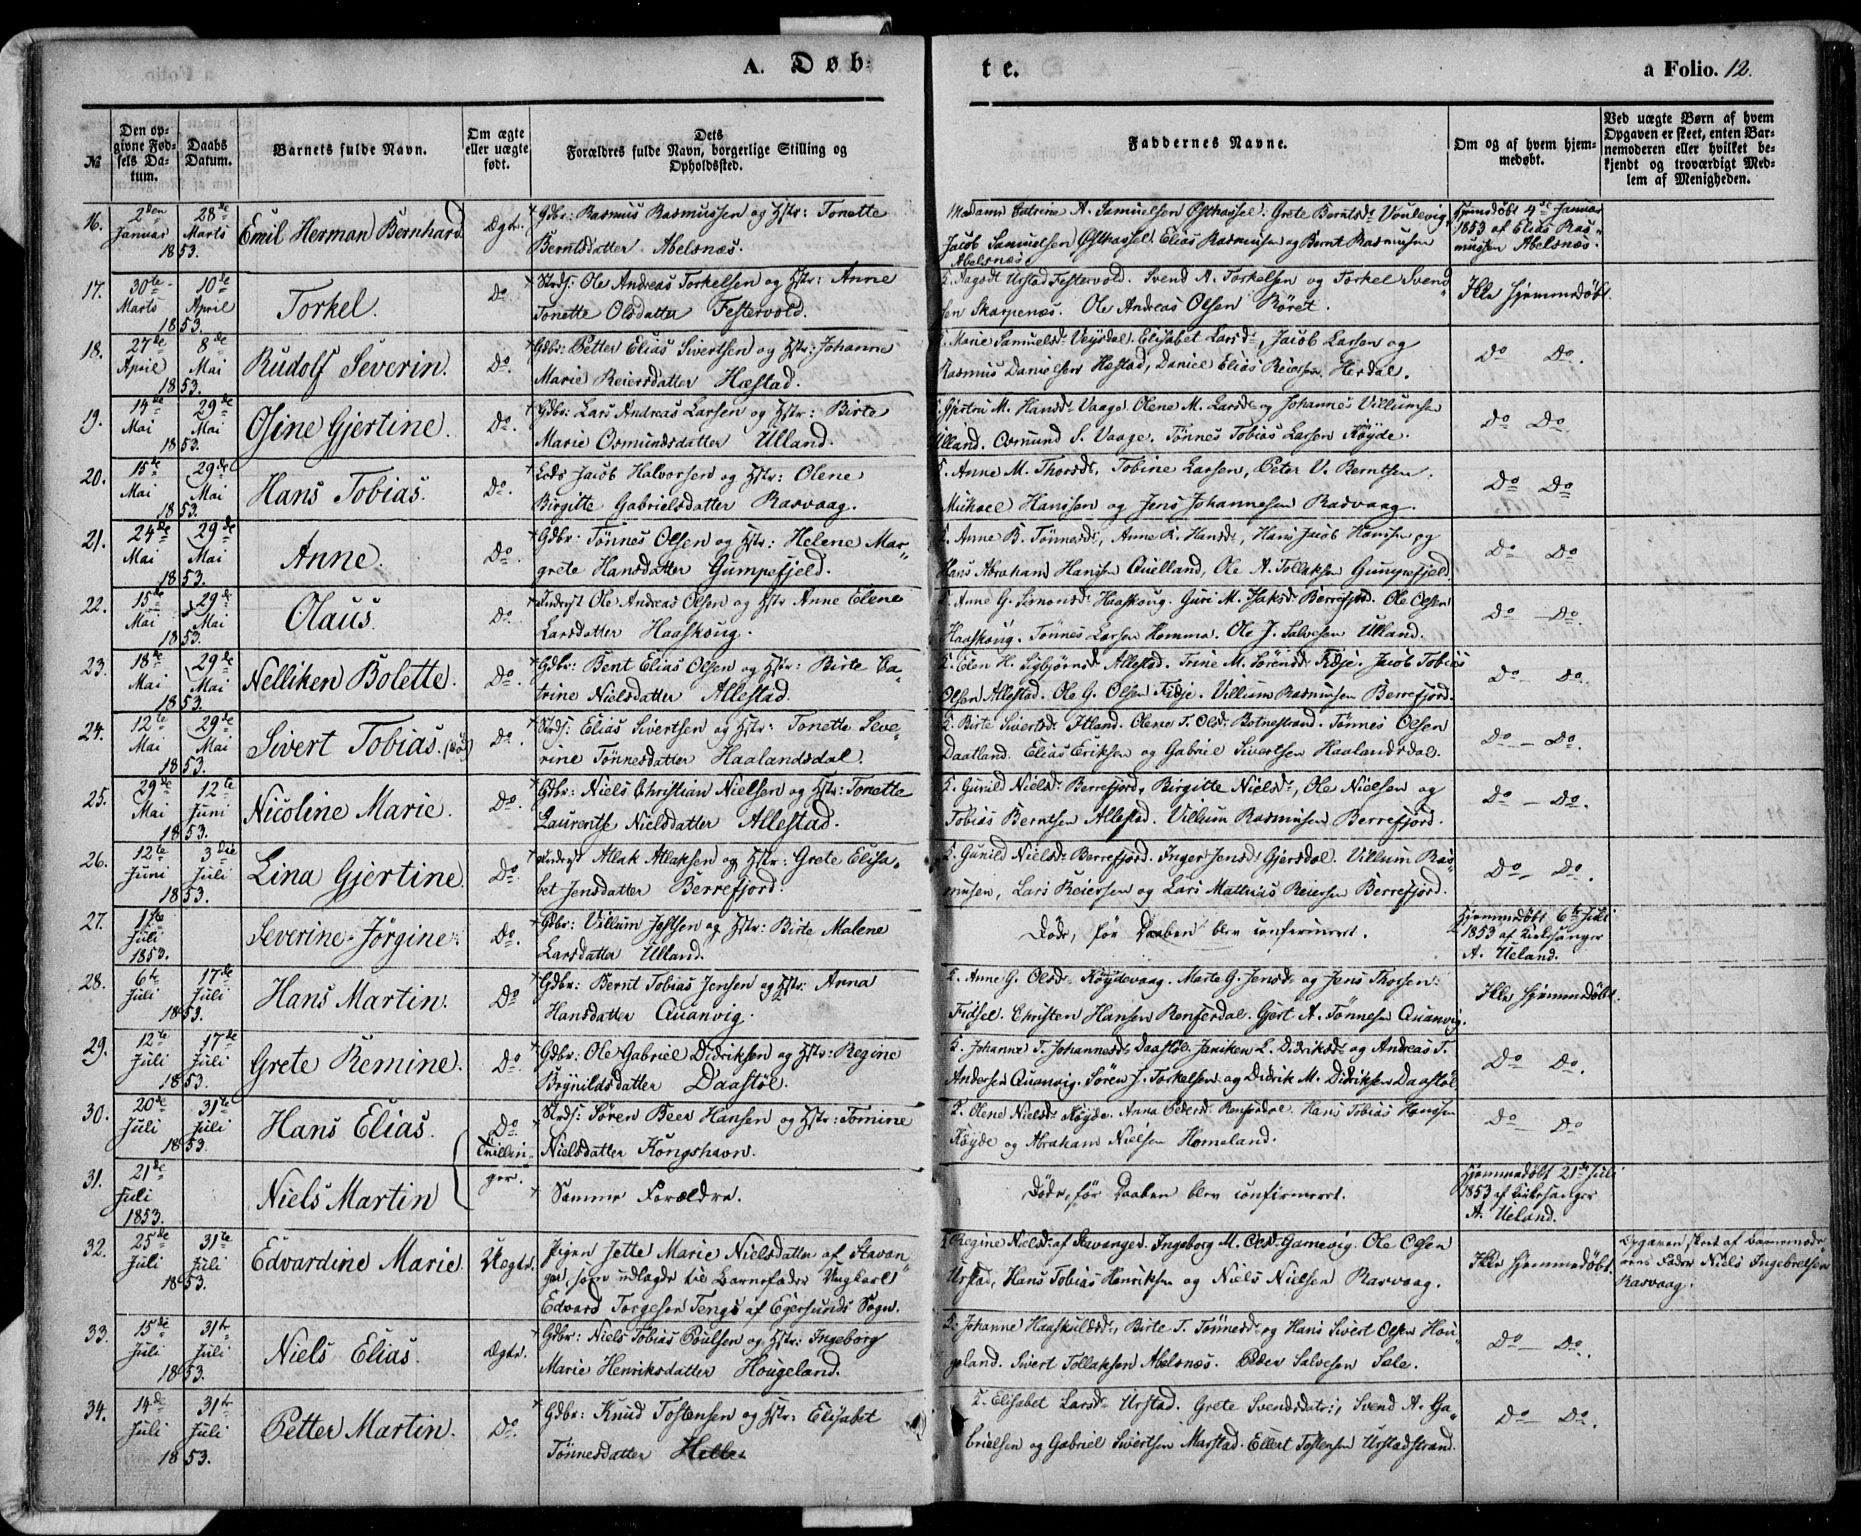 A. Døb-
te.
a Folio. 12.
№
Den op-
givne Fød-
sels Da-
tum.
Daabs
Datum.
Barnets fulde Navn.
Om ægte
eller uægte
født.
Dets
Forældres fulde Navn, borgerlige Stilling og
Opholdssted.
Faddernes Navne.
Om og af hvem hjem-
medøbt.
Ved uægte Børn af hvem
Opgaven er skeet, enten Bar-
nemoderen eller hvilket be-
kjendt og troværdigt Med-
lem af Menigheden.
16.
2den
Januar
28de
Marts
1853.
Emil Herman Bernhard
Ægte.
Gdbr: Rasmus Rasmussen og Hstr: Tonette
Berntsdatter Abelsnæs.
Madame Catrine A. Samuelsen Østhassel. Grete Berntsd. Voulevig
Jacob Samuelsen Østhassel, Elias Rasmussen og Bernt Rasmussen
Abelsnæs.
Hjemdøbt 4de Januar
1853 af Elias Ras-
mussen Abelsnæs.
17.
30te
Marts
10de
April
1853.
Torkel.
Do
Strds: Ole Andreas Torkelsen og Hstr: Anne
Tonette Olsdatter Festervold.
Urstad Festervold. Svend A. Torkelsen og Torkel Svend-
sen Skarpenæs. Ole Andreas Olsen Röret.
Ikke hjemmedøbt.
18.
27de
April
8de
Mai
1853.
Rudolf Severin.
Do.
Gdbr: Petter Elias Sivertsen og Hstr: Johanne
Marie Reiersdatter Hæstad.
Marie Samuelsd. Veisdal. Elisabet Larsd., Jacob Larsen og
Rasmus Danielsen Hæstad, Daniel Elias Reiersen Herdal.
Do Do.
19.
14de
Mai
29de
Mai
1853.
Osine Gjertine.
Do.
Gdbr: Lars Andreas Larsen og Hstr: Birte
Marie Osmundsdatter Ulland.
Gjertru M. Hansd. Vaage. Olene M. Larsd. og Johannes Villumsen
Ulland. Osmund S. Vaage. Tönnes Tobias Larsen Röyde.
Do Do.
20.
15de
Mai
29de
Mai
1853.
Hans Tobias.
Do.
Lods Jacob Halvorsen og Hstr: Olene
Birgitte Gabrielsdatter Rasvaag.
F. Anne M. Thorsd. Tobine Larsen, Peter V. Berntsen.
Michael Hanssen og Jens Johannesen Rasvaag.
Do Do
21.
24de
Mai
29de
Mai
1853.
Anne.
Do.
Gdbr: Tönnes Olsen og Hstr: Helene Mar-
grete Hansdatter Gumpefjeld.
F. Anne B. Tönnesd., Anne R. Hansd., Hans Jacob Hanssen og
Hans Abraham Hanssen Qvelland, Ole A. Tollaksen Gumpefjeld
Do Do.
22.
15de
Mai
29de
Mai
1853.
Olaus.
Do.
Inderst Ole Andreas Olsen og Hstr Anne Elene
Larsdatter Haaskoug.
F. Anne G. Simonsd. Haaskoug. Guri M. Isaksd. Berrefjord. Ole Olsen
Haaskoug. Tönnes Larsen Homma. Ole J. Salvesen Ulland.
Do - Do.
23.
18de
Mai
29de
Mai
1853.
Nelliken Bolette.
Do.
Gdbr: Bent Elias Olsen og Hstr: Birte Ca-
trine Nielsdatter Allestad.
F. Elen H. Sigbjörnsd. Allestad. Trine M. Sörensd. Fidje. Jacob Tobias
Olsen Allestad. Ole G. Olsen Fidje. Villum Rasmussen Berrefjord.
Do - Do.
24.
12te
Mai
29de
Mai
1853.
Sivert Tobias.
Do.
Strds: Elias Sivertsen og Hstr: Tonette Seve-
rine Tönnesdatter Haalandsdal.
F. Birte Sivertsd. Itland. Olene T. Olsd. Botnestrand. Tönnes Olsen
Daatland. Elias Eriksen og Gabriel Sivertsen Haalandsdal.
Do - Do.
25.
29de
Mai
12te
Juni
1853.
Nicoline Marie.
Do.
Gdbr: Niels Christian Nielsen og Hstr: Tonette
Laurentse Nielsdatter Allestad.
F. Gunild Nielsd. Berrefjord, Birgitte Nielsd., Ole Nielsen og
Tobias Berntsen Allestad. Villum Rasmussen Berrefjord.
Do - Do.
26.
12te
Juni
3die
Juli
1853.
Lina Gjertine.
Do.
Inderst Allak Allaksen og Hstr: Grete Elisa-
bet Jensdatter Berrefjord.
F. Gunild Nielsd. Berrefjord. Inger Jensd. Gjersdal. Villum Ras-
mussen, Lars Reiersen og Lars Mathias Reiersen Berrefjord.
Do - Do.
27.
1ste
Juli
1853.
Severine Jörgine.
Do.
Gdbr: Villum Jostsen og Hstr: Birte Malene
Larsdatter Ulland.
Döde, før Daaben blev confirmeret.
Hjemmedøbt 6te Juli
1853 af Kirkesanger
A. Ueland.
28.
6te
Juli
17de
Juli
1853.
Hans Martin.
Do
Gdbr: Bernt Tobias Jensen og Hstr: Anna
Hansdatter Qvanvig.
F. Anne G. Olsd. Röydevaag. Marte G. Jensd. og Jens Thorsen
Fidsel. Christen Hansen Renfersdal. Gjert A. Tönnesen Qvanvig.
Ikke hjemmedøbt.
29.
12te
Juli
17de
Juli
1853.
Grete Remine.
Do.
Gdbr: Ole Gabriel Didriksen og Hstr: Regine
Brynildsdatter Daastöl.
F. Johanne T. Johannesd. Daastöl. Janiken L. Didriksd. og Andreas T.
Andersen Qvanvig. Sören J. Torkelsen og Didrik M. Didriksen Daastöl
Do Do.
30.
20de
Juli
31te
Juli
1853.
Hans Elias.
Do.
Tvillin-
ger.
Strds: Sören Beer Hansen og Hstr: Tomine
Nielsdatter Kongshavn.
F. Olene Nielsd. Röyde. Anna Pedersd. Renfersdal. Hans Tobias Hanssen
Röyde og Abraham Nielsen Homeland.
Do - Do
31.
21de
Juli
1853.
Niels Martin
Samme Forældre.
Döde, før Daaben blev confirmeret.
Hjemmedøbt 21de Juli
1853 af Kirkesanger
A. Ueland.
32.
25de
Juli
31te
Juli
1853.
Edvardine Marie.
Uægte.
Pigen Jette Marie Nielsdatter af Stavan-
ger, som udlagde til Barnefader Ungkarl
Edvard Torgersen Tengs af Egersunds Sogn.
Regine Nielsd. af Stavanger. Ingeborg M. Olsd. Garnevig. Ole Olsen
Urstad, Hans Tobias Henriksen og Niels Nielsen Rasvaag.
Ikke hjemmedøbt.
Opgaven skeet af Barnemode-
rens Fader Niels Ingebretsen
Rasvaag.
33.
15de
Juli
31te
Juli
1853.
Niels Elias.
Ægte.
Gdbr: Niels Tobias Poulsen og Hstr: Ingeborg
Marie Henriksdatter Hougeland.
F. Johanne Haaskildsd., Birte T. Tönnesd. og Hans Sivert Olsen Hou-
geland. Sivert Tollaksen Abelsnæs. Peder Salvesen Sele.
Do - Do.
34.
14de
Juli
31te
Juli
1853.
Petter Martin.
Do.
Gdbr: Knud Tostensen og Hstr: Elisabet
Tönnesdatter Helle.
F. Elisabet Larsd. Urstad. Grete Svendsdatr, Svend A. Ga-
brielsen og Gabriel Sivertsen Marstad. Ellert Tostensen Urstadstrand.
Do - Do.